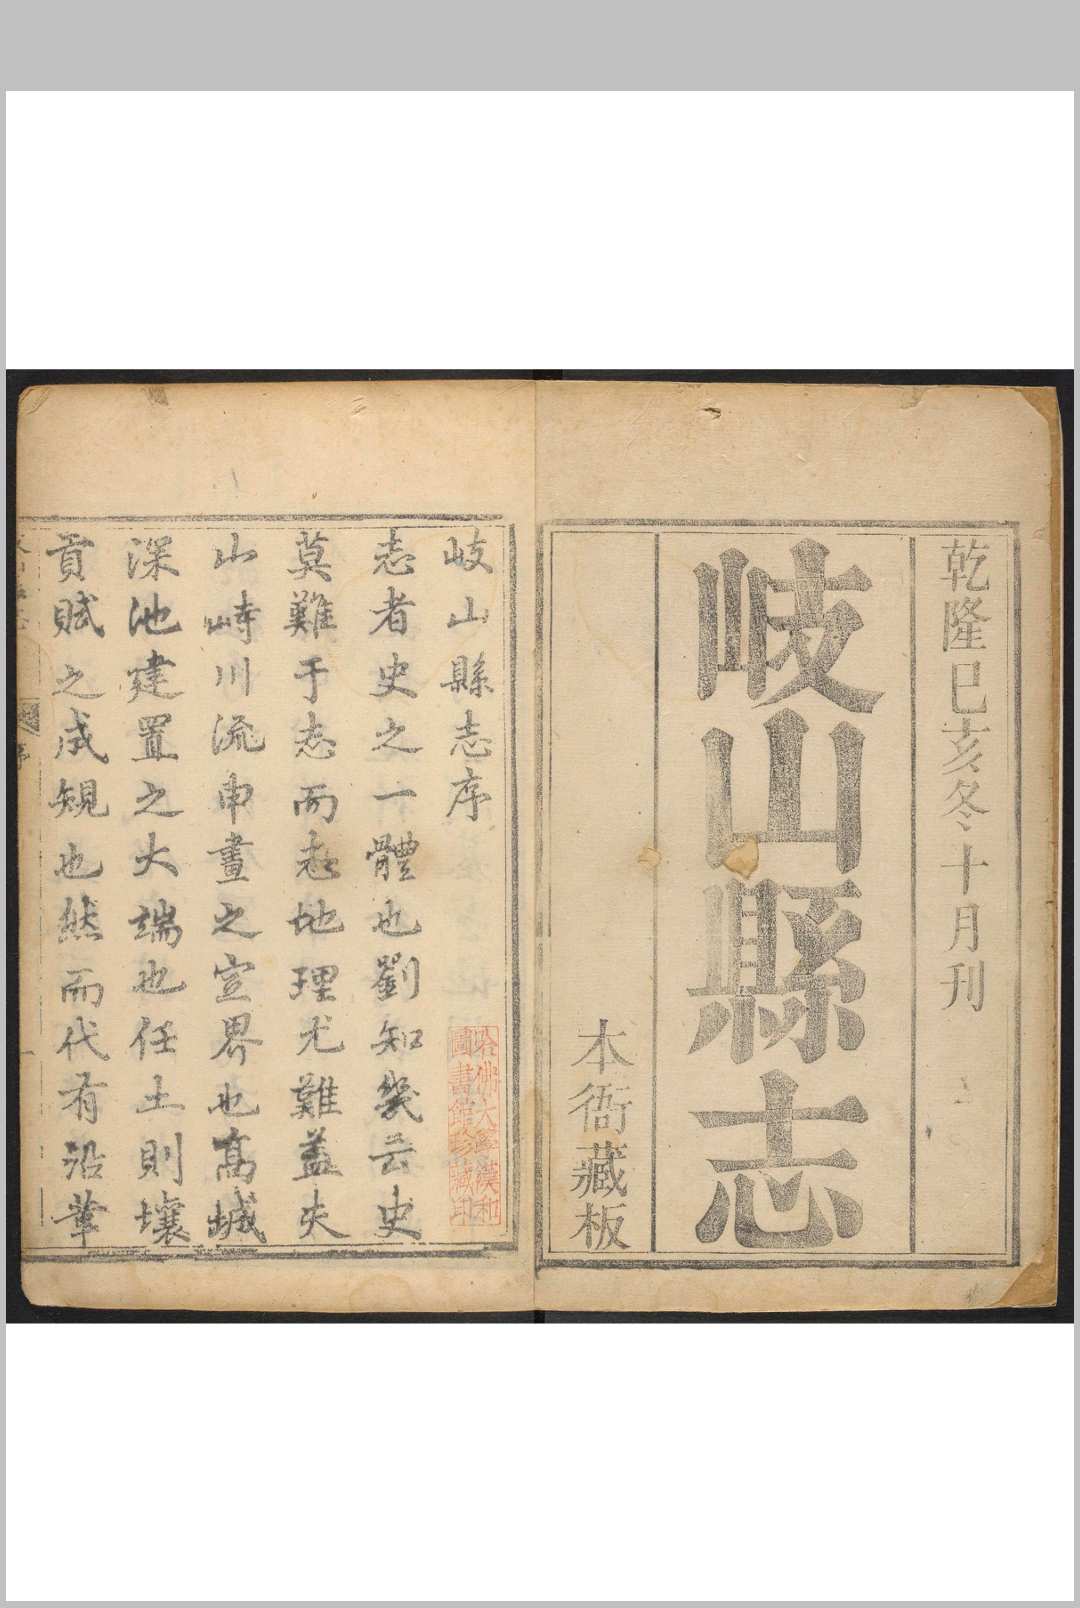 乾隆已亥冬十月刊
岐山縣志
本衙藏板
岐山縣志序
志者史之一體也劉知幾云史
莫難于志而志地理尤難蓋夫
山峙川流申畫之宣界也高城
深池建置之大端也任土則壤
貢賦之成規也然而代有沿革
哈佛大學漢和
圖書館珍藏印